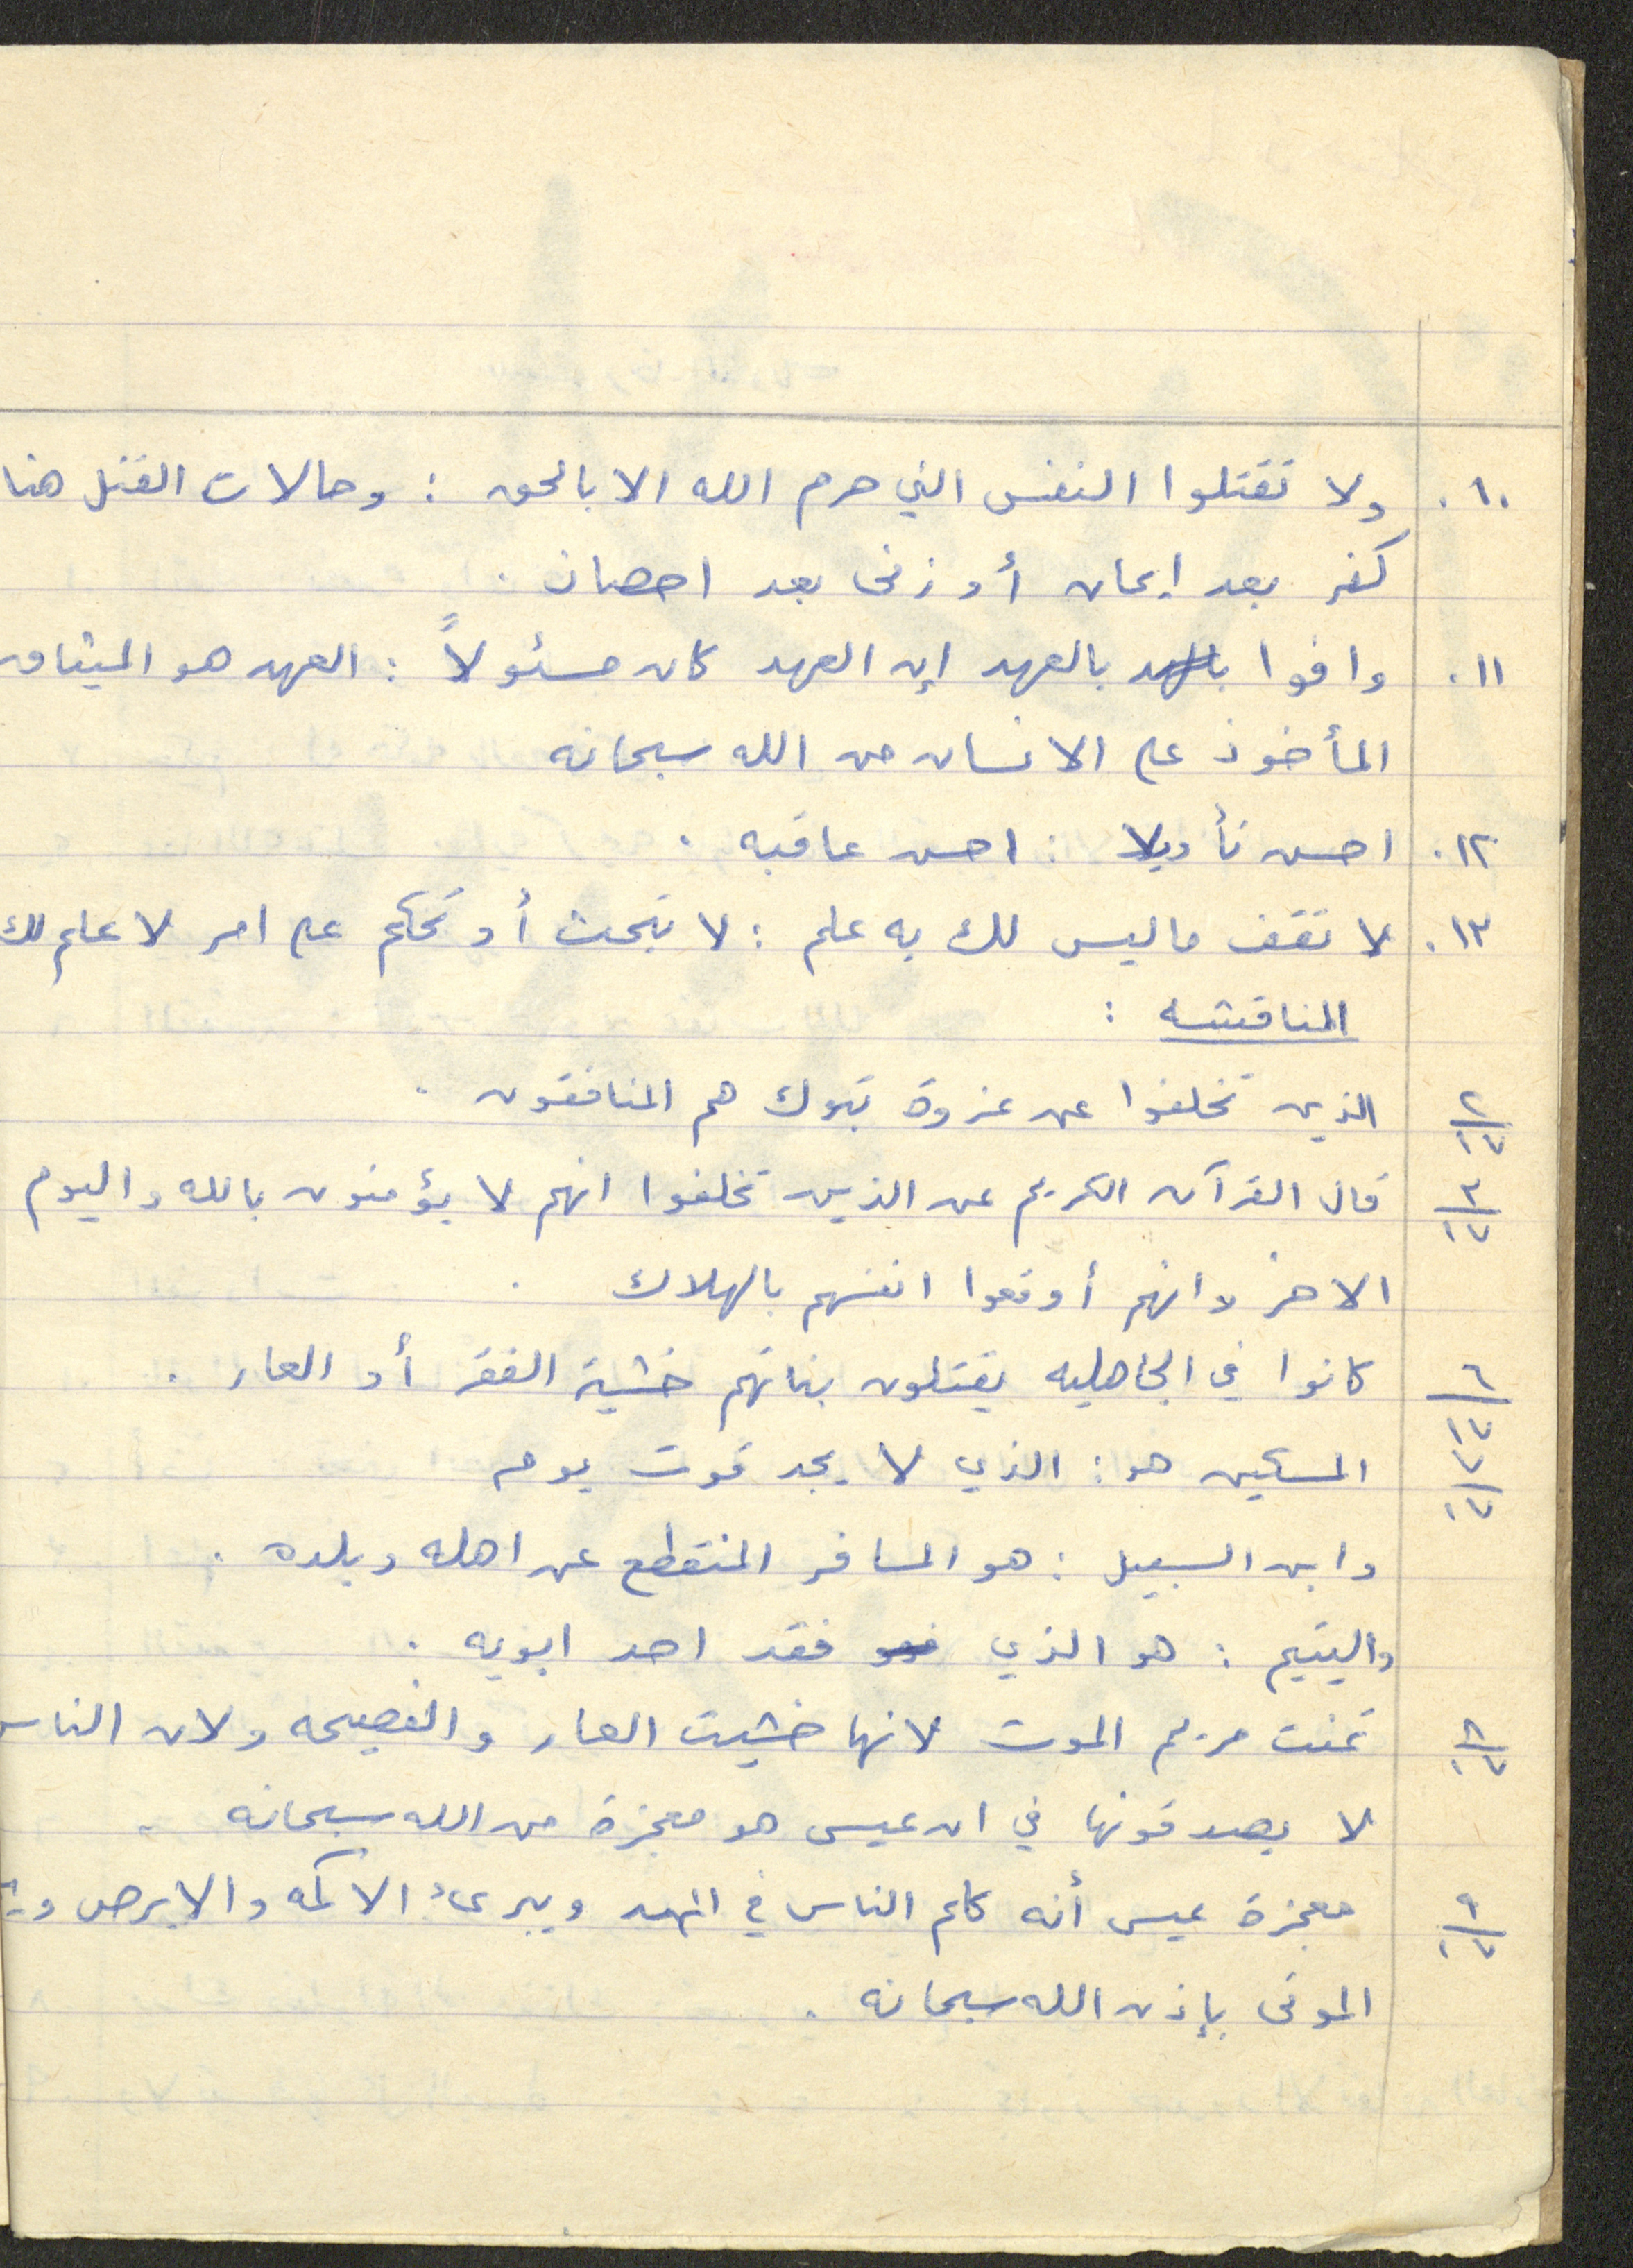 ١٠. ولا تقتلوا النفس التي حرم الله الا بالحق : وحالات القتل هنا
كفر بعد ايمان أو زنى بعد احصان .
١١. وافوا بالعهد بالعهد إن العهد كان مسئولاً : العهد هو الميثاق
المأخوذ على الانسان من الله سبحانه
١٢. احسن تأويلا : احسن عاقبه .
١٣. لا تقف ماليس لك به علم : لا تبحث أو تحكم على امر لا علم لك
المناقشه :
٢/١٧ الذين تخلفوا عن غزوة تبوك هم المنافقون .
٣/١٧ قال القرآن الكريم عن الذين تخلفوا انهم لا يؤمنون بالله واليوم
الاخر وانهم أوقعوا انفسهم بالهلاك .
٦/١٧ كانوا في الجاهليه يقتلون بناتهم خشية الفقر أو العار .
٧/١٧ المسكين هو : الذي لا يجد قوت يوم
وابن السبيل : هو المسافر المنقطع عن اهله وبلده .
واليتيم : هو الذي فقد احد ابويه .
٨/١٧ تمنت مريم الموت لانها خشيت العار والفضيحه ولان الناس
لا يصدقونها في ان عيسى هو معجزة من الله سبحانه .
٩/١٧ معجزة عيسى أنه كلم الناس في المهد ويبرىء الاكمه والابرص
الموتى بإذن الله سبحانه .